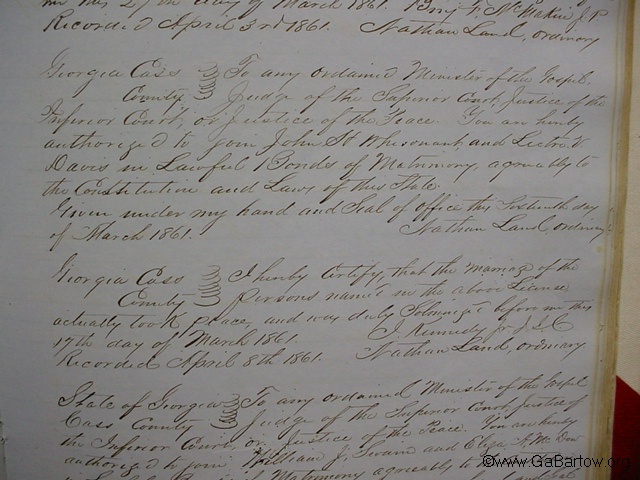 me this 27th day of March 1861. F. McMakin J. P.
Recorded April 3rd 1861. Nathan Land, ordinary
Georgia Cass To any ordained Minister of the Gospel,
County Judge of the Superior Court, Justice of the
Inferior Court, or Justice of the Peace. You are hereby
authorized to join John St and
Davis in Lawful Bonds of Matrimony, agreeably to
the Constitution and Laws of this State.
Given under my hand and Seal of office this Sixteenth day
of March 1861. Nathan Land, ordinary
Georgia Cass I hereby Certify, that the marriage of the
County Persons name'd in the above License
actually took place, and was duly Solminize'd before me this
17th day of March 1861. J. Kennedy Jr J. I. C
Recorded April 8th 1861. Nathan Land, ordinary
State of Georgia To any ordained Minister of the Gospel
Cass County Judge of the Superior Court, Justice of
the Inferior Court, or Justice of the Peace. You are hereby
authorized to join William J. and A. McDow
Matrimony agreeably to
©www.GaBartow.org